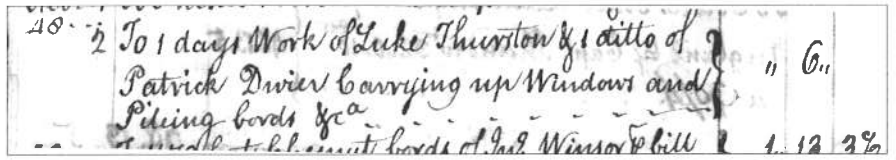 48
2 To 1 days Work of Luke Thurston & 1 ditto of
Patrick Dwier Carrying up Windows and " 6 "
Pileing bords &ca
bords of Jno. Winsor bill 1 13 3½